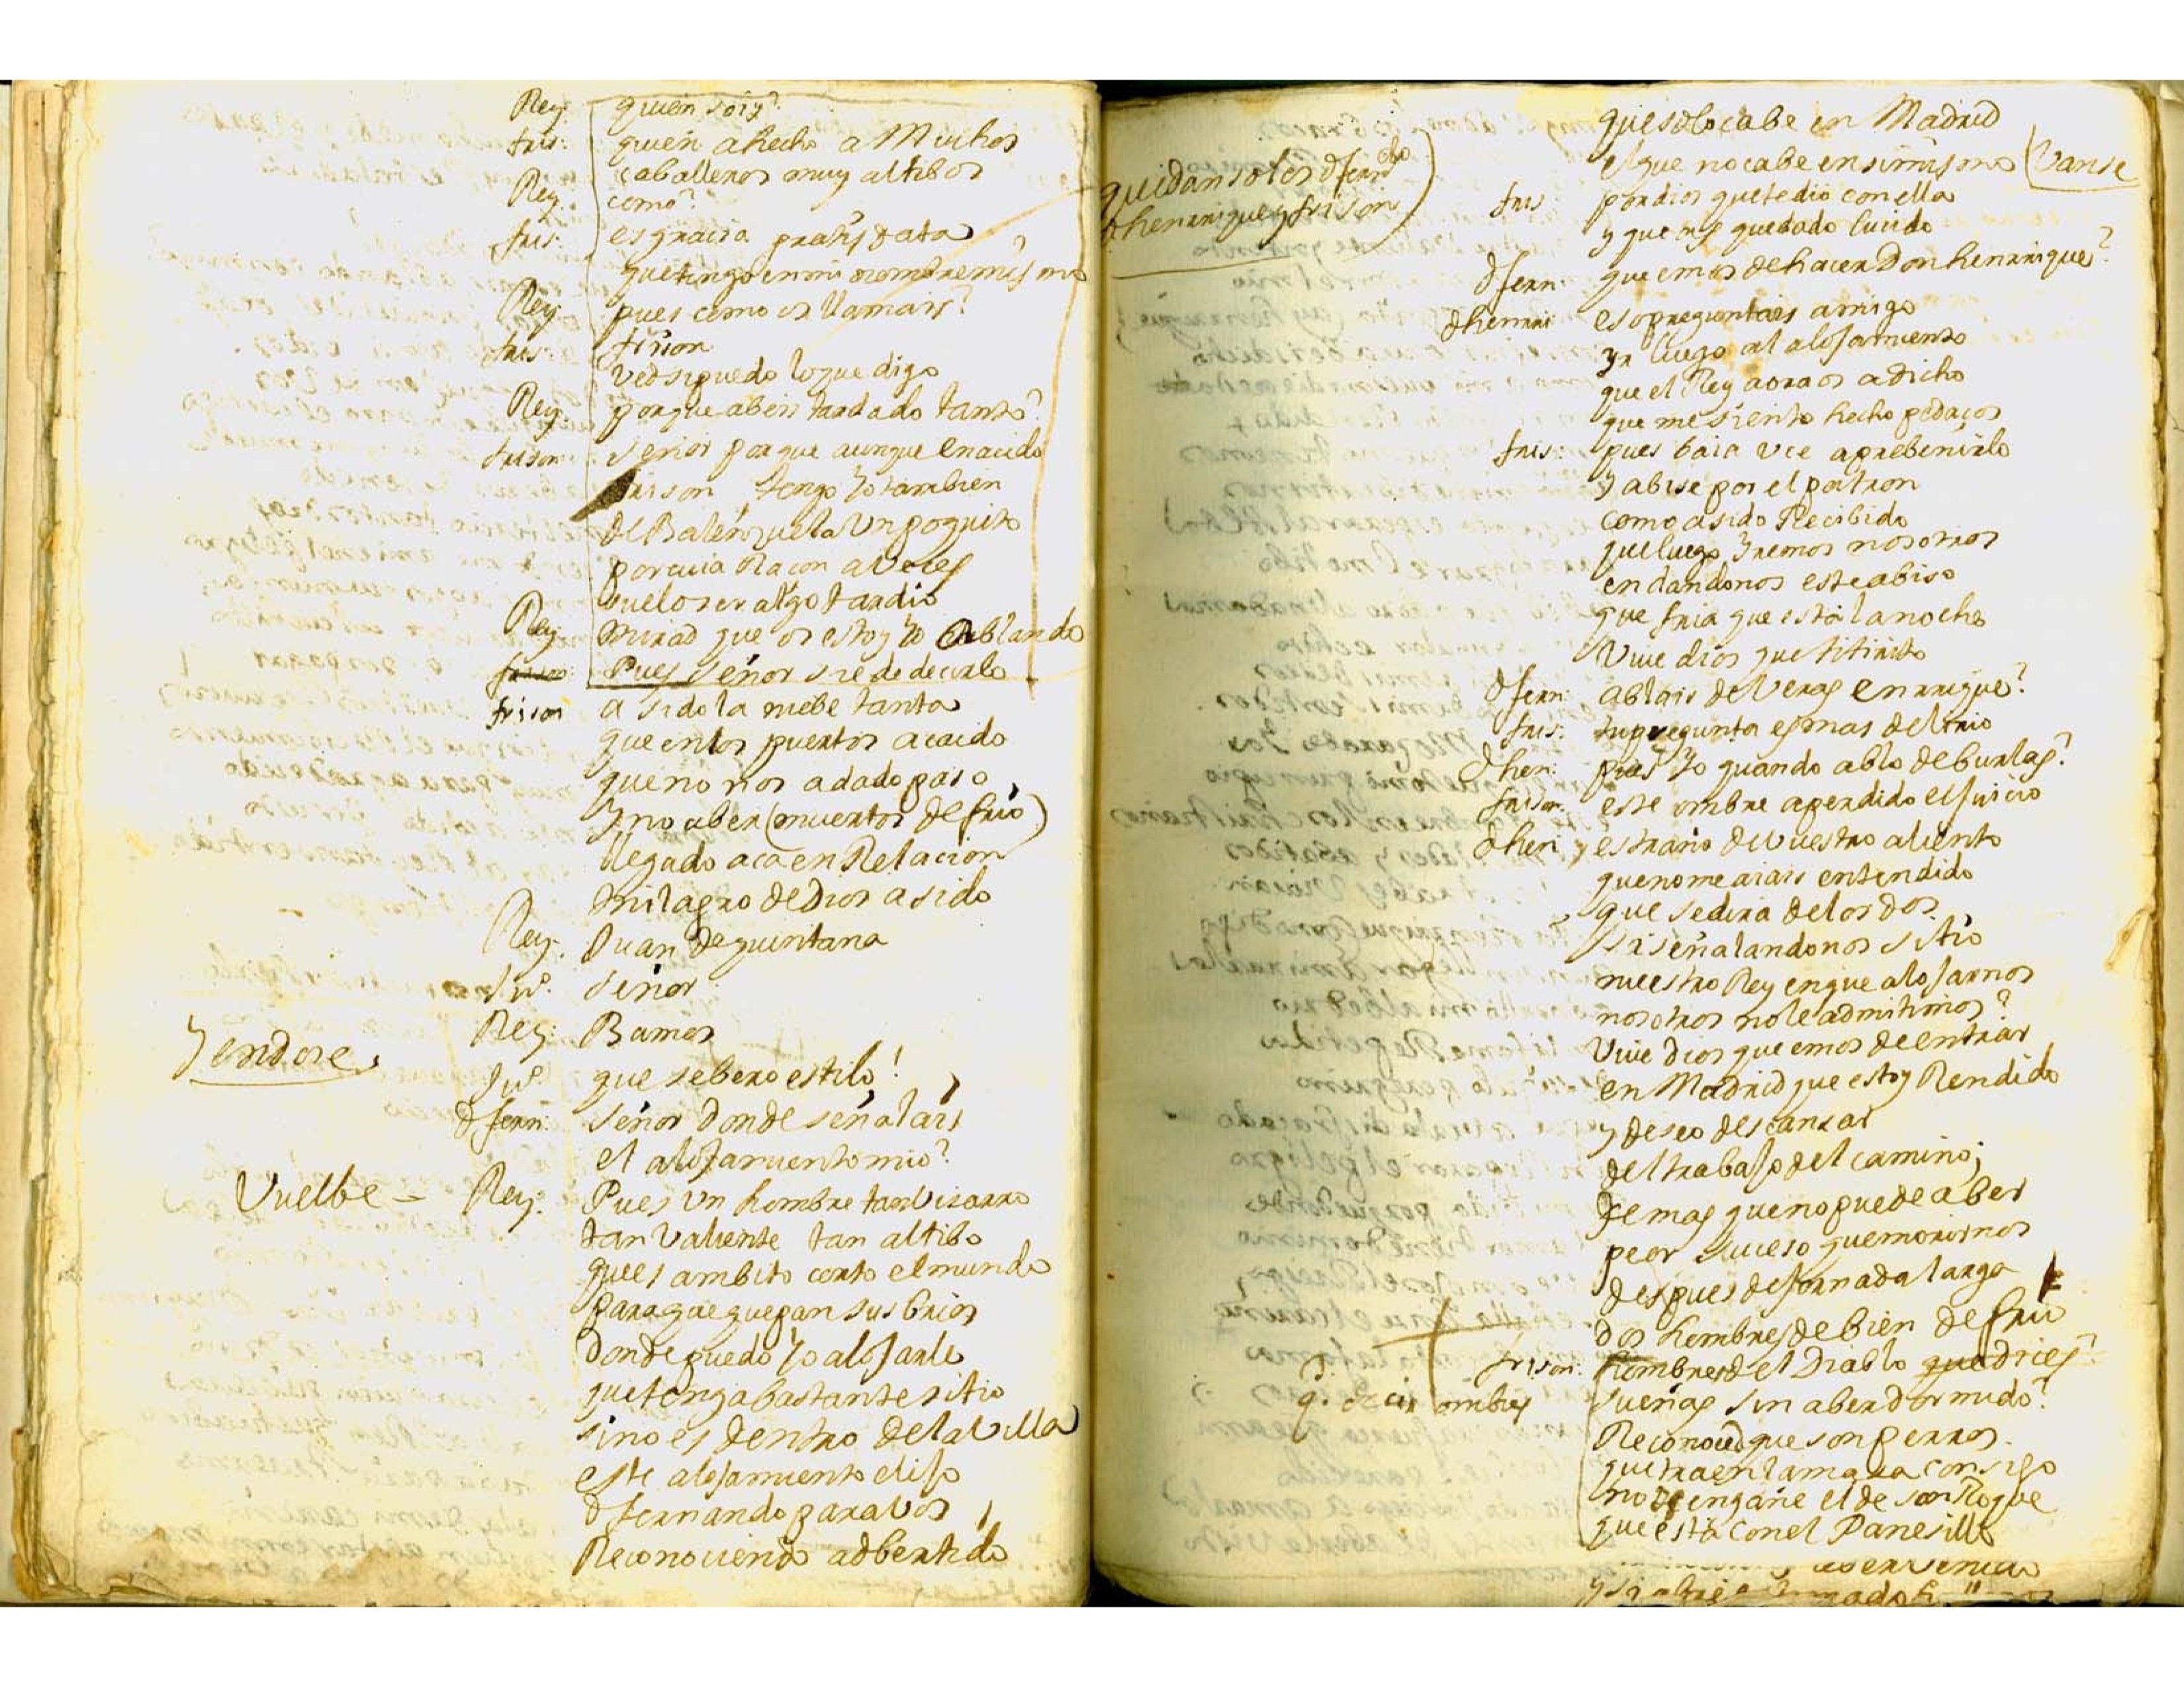 Rey: quien sois?
fris: quien a hecho a Muchos
caballeros muy altibos
Rey. como?
fris: es gracia gratis data
que tengo en mi nombre mismo
Rey- pues como os llamais?
fris: frison
Ved si puedo lo que digo
Rey. porque abeis tardado tanto?
frison: señor porque aunque e nacido
frison tengo Yo tambien
de Balençuela Un poquito
por cuia Racon a veces
suelo ser algo tardio
Rey: mirad que os estoy Yo Ablando
frison: Pues señor si e de decirlo
frison a sido la niebe tanta
que en los puertos a caido
que no nos a dado paso
Y no aber (muertos de frio)
llegado aca en Relacion
milagro de Dios a sido
Rey. Juan de quintana
Juº. señor
Rey: Bamos
Yendose,
Juº. que sebero estilo!
d fern: señor donde señalais
el alojamiento mio?
Vuelbe - Rey: Pues Un hombre tan Vizarro
tan Valiente tan altibo
que es ambito corto el mundo
para que quepan sus brios
donde puedo Yo alojarle
que tenga bastante sitio
sino es dentro de la Villa
este alojamiento elijo
d fernando para vos
Reconociendo adbertido
que solo cabe en Madrid
el que no cabe en si mismo (Vanse
quedan solos d ferndo
d henrrique y frison
fris: por dios que te dio con ella
y que as quedado lucido
d fern: que emos de hacer Don henrrique?
d henrri eso preguntais amigo
yr luego al alojamiento
que el Rey aora os a dicho
que me siento hecho pedaços
fris: pues baia Vce a prebenirlo
Y abise por el patron
como a sido Recibido
que luego Yremos nosotros
en dandonos este abiso
que fria que està la noche
Vive dios que titirito
d fern: ablais de Veras enrrique?
fris: tu pregunta es mas del frio
d hen: pues Yo quando ablo de burlas?
frison: este ombre a perdido el juicio
d hen: estraño de vuestro aliento
que no me aiais entendido
que se dira de los dos
si señalandonos sitio
nuestro Rey en que alojarnos
nosotros no le admitimos?
Vive Dios que emos de entrar
en Madrid que estoy Rendido
y deseo descansar
del trabajo del camino;
demas que no puede aber
peor suceso que morirnos
despues de jornada larga
dos hombres de bien de frio
frison: hombres del Diablo que dices?
q. decis ombres
sueñas sin aber dormido?
Reconoced que son perros
que traen la magra consigo
no os engañe el de san Roque
que està con el Panesillo